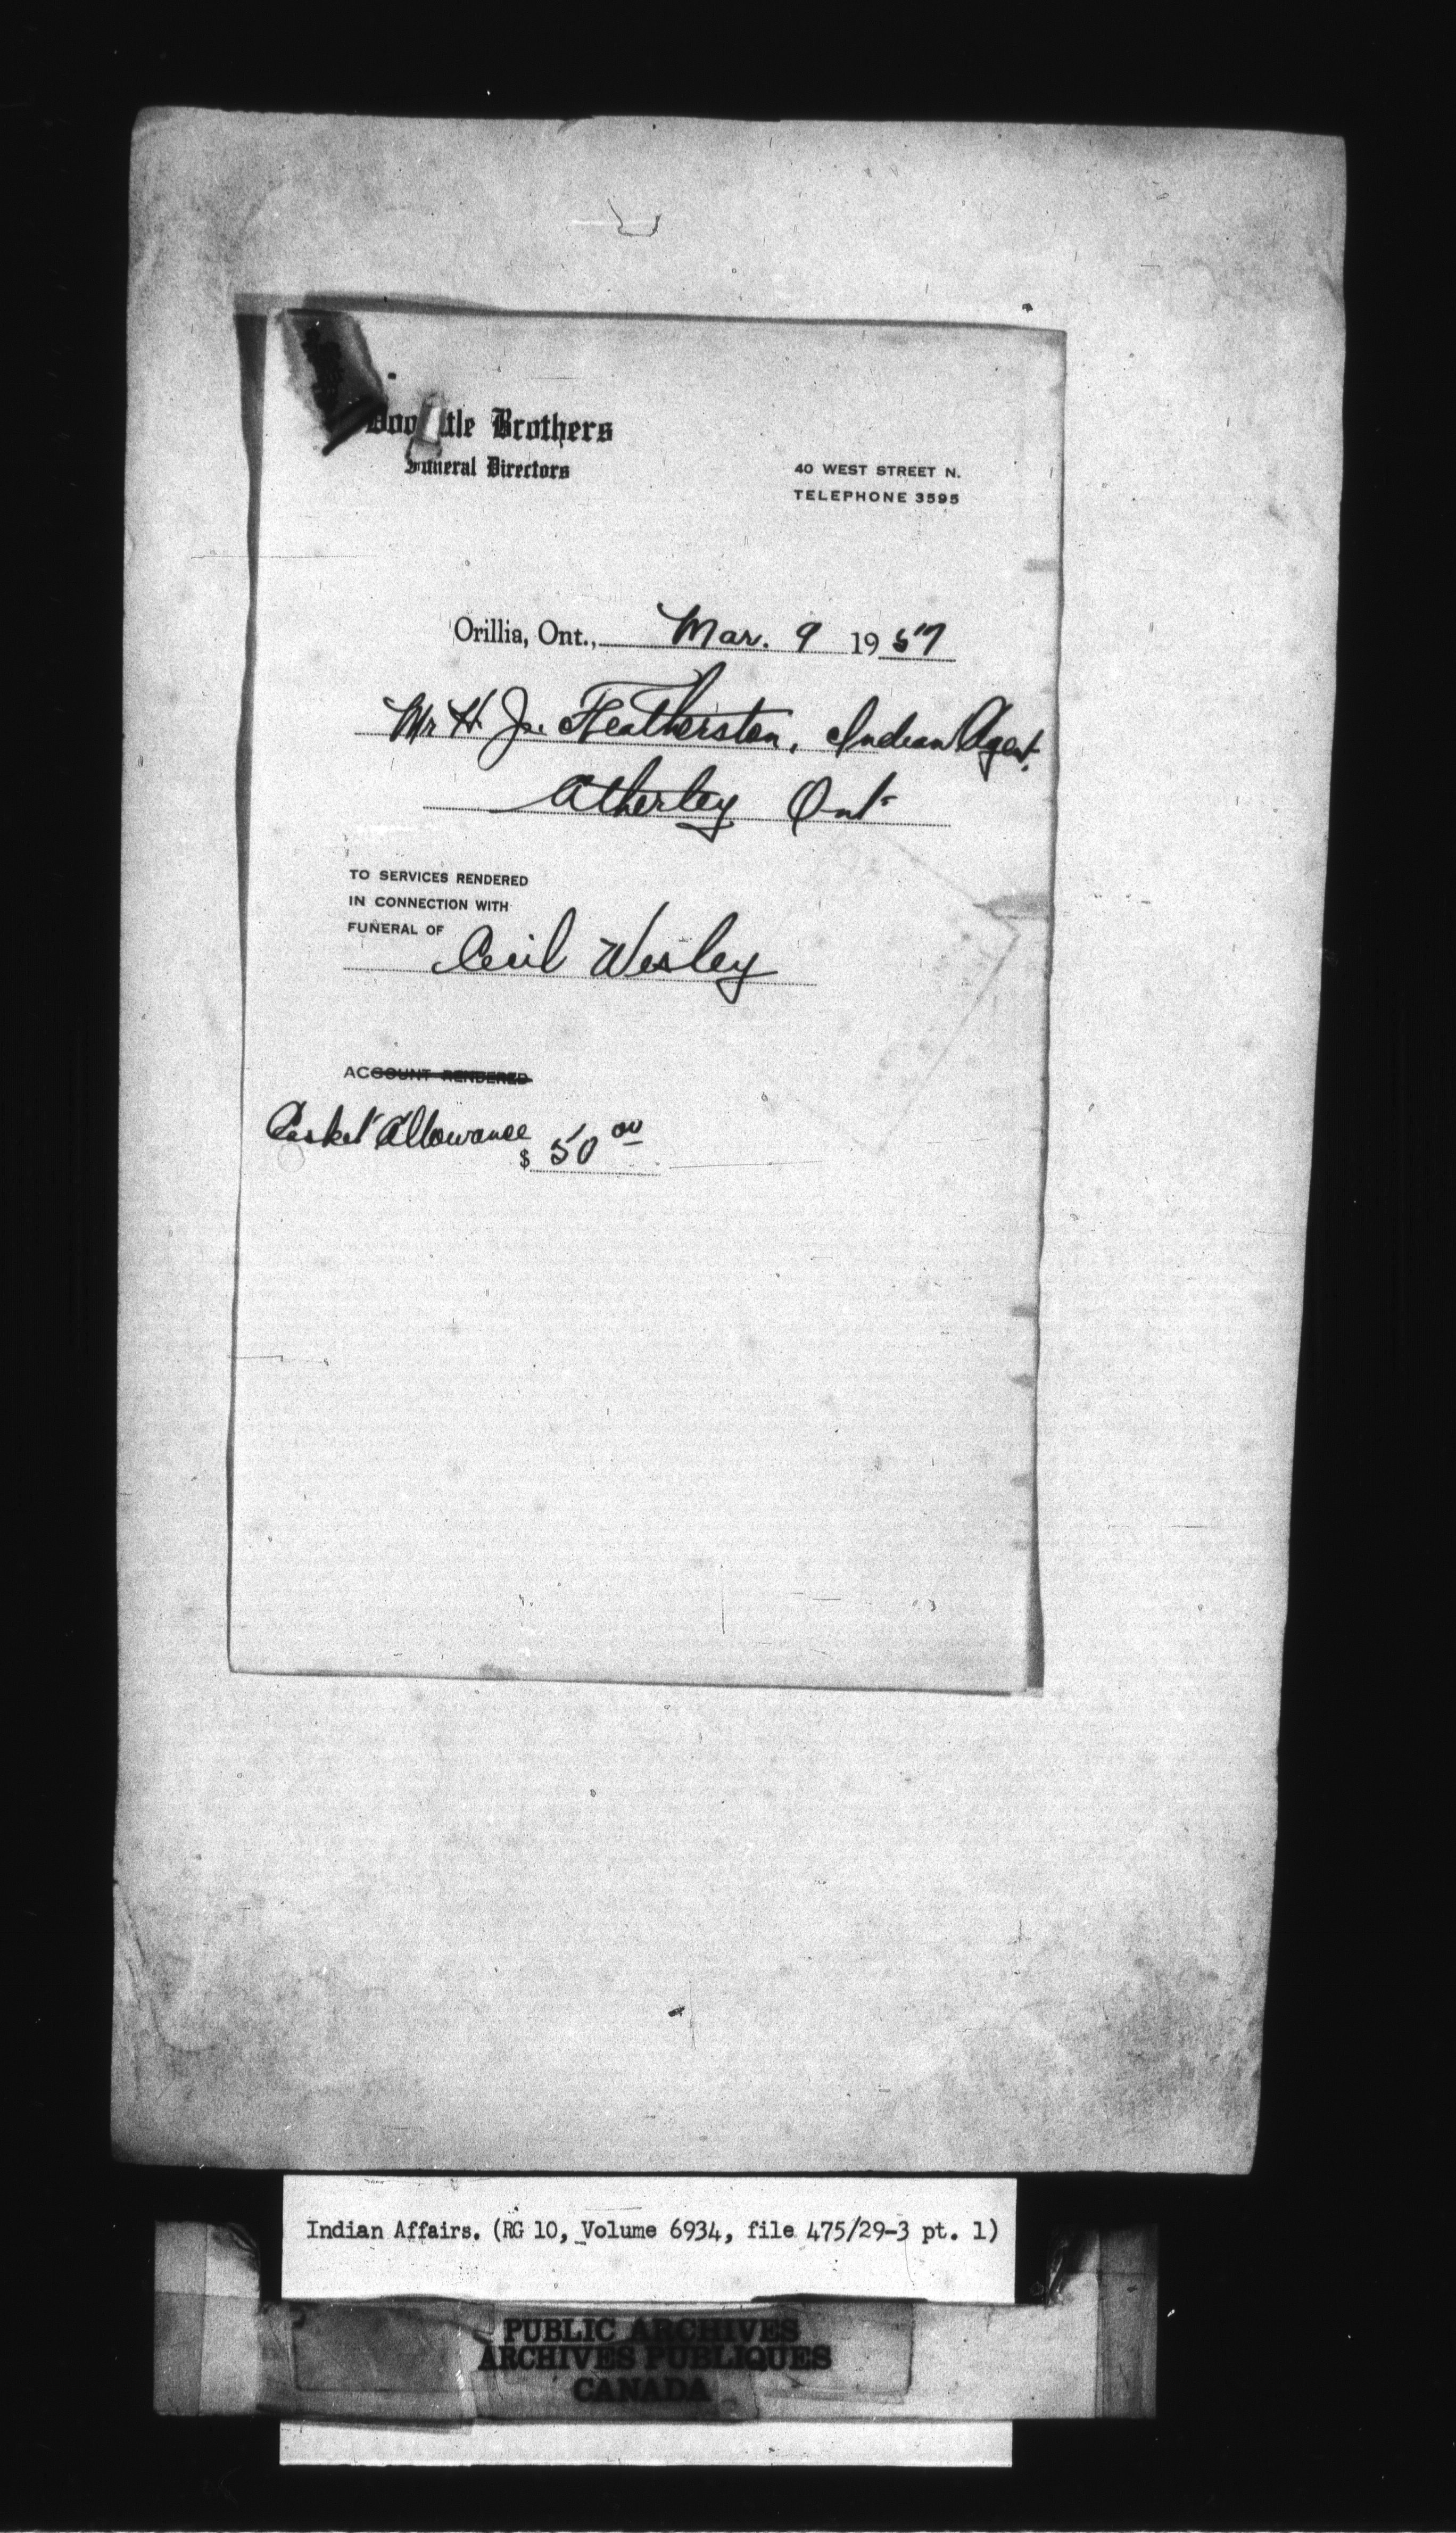 Doo tle Brothers
Funeral Directors
40 WEST STREET N.
TELEPHONE 3595
Orillia, Ont., Mar. 9 1957
Mr H. J. Featherston, Indian Agent.
Atherley Ont-
TO SERVICES RENDERED
IN CONNECTION WITH
FUNERAL OF Cecil Wesley
ACCOUNT RENDERED
Casket Allowance
$ 50 00
Indian Affairs. (RG 10, Volume 6934, file 475/29-3 pt. 1)
PUBLIC ARCHIVES
ARCHIVES PUBLIQUES
CANADA